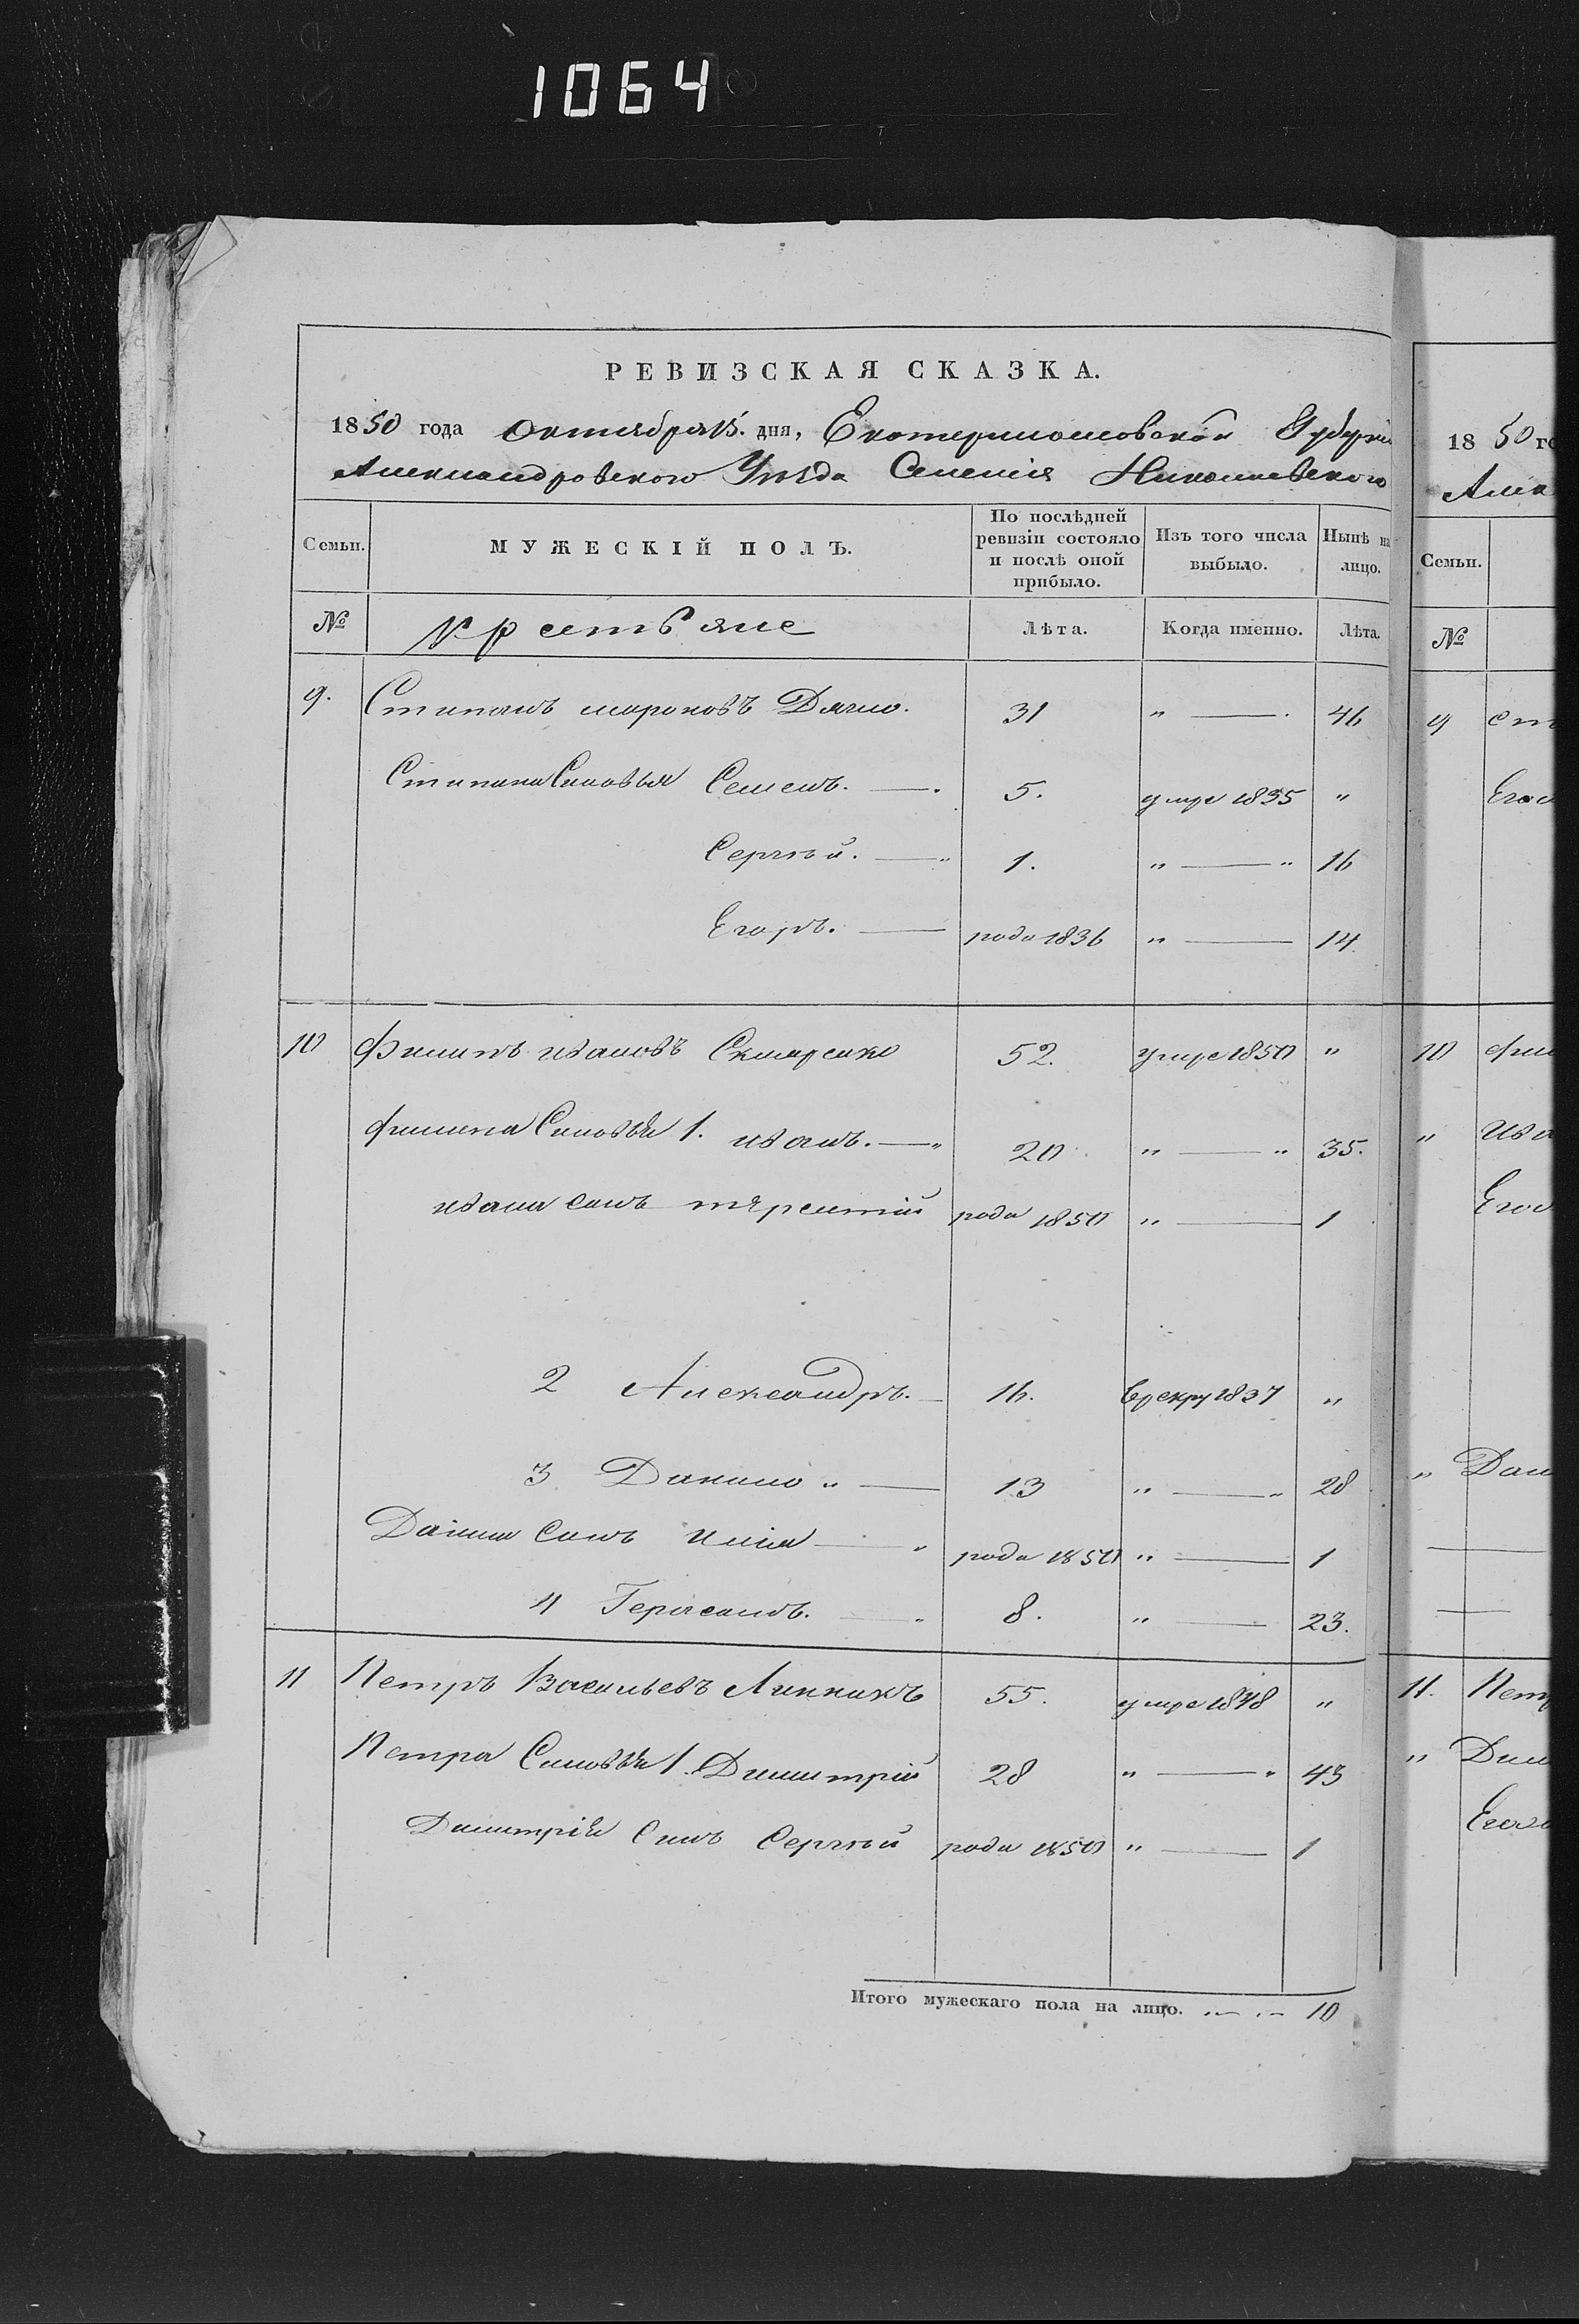 1064
РЕВИЗСКАЯ СКАЗКА.
1850 года октября 15. дня, Екатеринославской Губерніи
Александровского Уѣзда Селенія Николаевского
Семьи. МУЖЕСКІЙ ПОЛЪ. По послѣдней ревизіи состояло и послѣ оной прибыло. Изъ того числа выбыло. Нынѣ на лицо.
№ крестьяне Лѣта. Когда именно. Лѣта.
9. Степанъ марковъ Дячко. 31 " — 46
Степана Сыновья Семенъ. — 5. умре 1835 "
Сергѣй. — 1. " — " 16
Егоръ. — рода 1836 " — 14.
10 Филипъ ивановъ Скляренко 52. умре 1850 "
филипа Сыновья 1. иванъ. — " 20 " — " 35.
ивана сынъ терентий рода 1850 " — 1
2 Александръ. — 16. в рекру 1837 "
3 Данило " — 13 " — " 28
Данила Сынъ илія — " рода 1850 " — 1
4 Герасимъ. — 8. " — 23.
11 Петръ Васильевъ Линникъ 55. умре 1848 "
Петра Сыновья 1. Димитрій 28 " — " 43
Димитрія Сынъ Сергѣй рода 1850 " — 1
Итого мужескаго пола на лицо. 10
18 50 го
Алек
Семьи.
№
9 Сте
Его
10 фил
" Ива
Его
" Дан
11. Петр
" Дим
Его